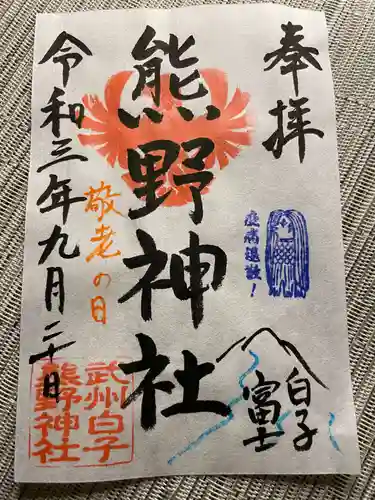 奉拝
疫病退散!
白子
富士
熊野神社
敬老の日
令和三年九月二十日
武州白子
熊野神社